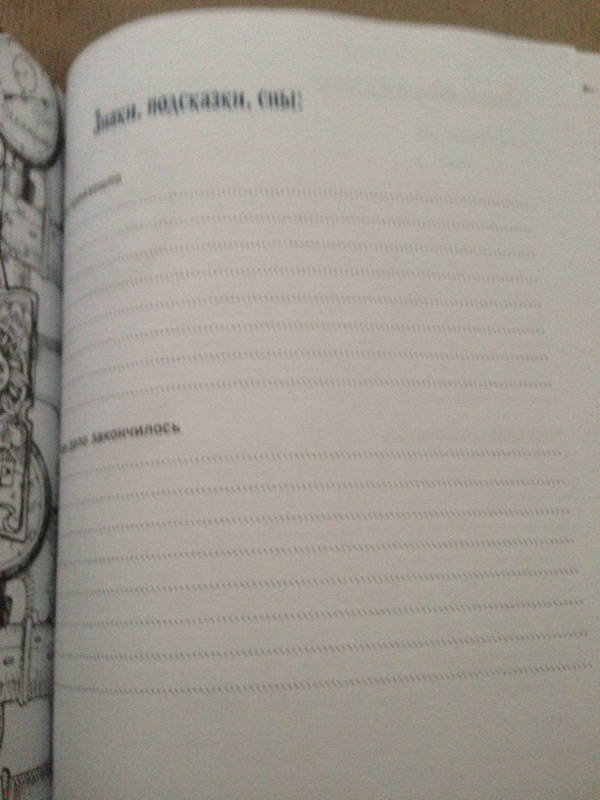 Знаки, подсказки, сны:
дело закончилось